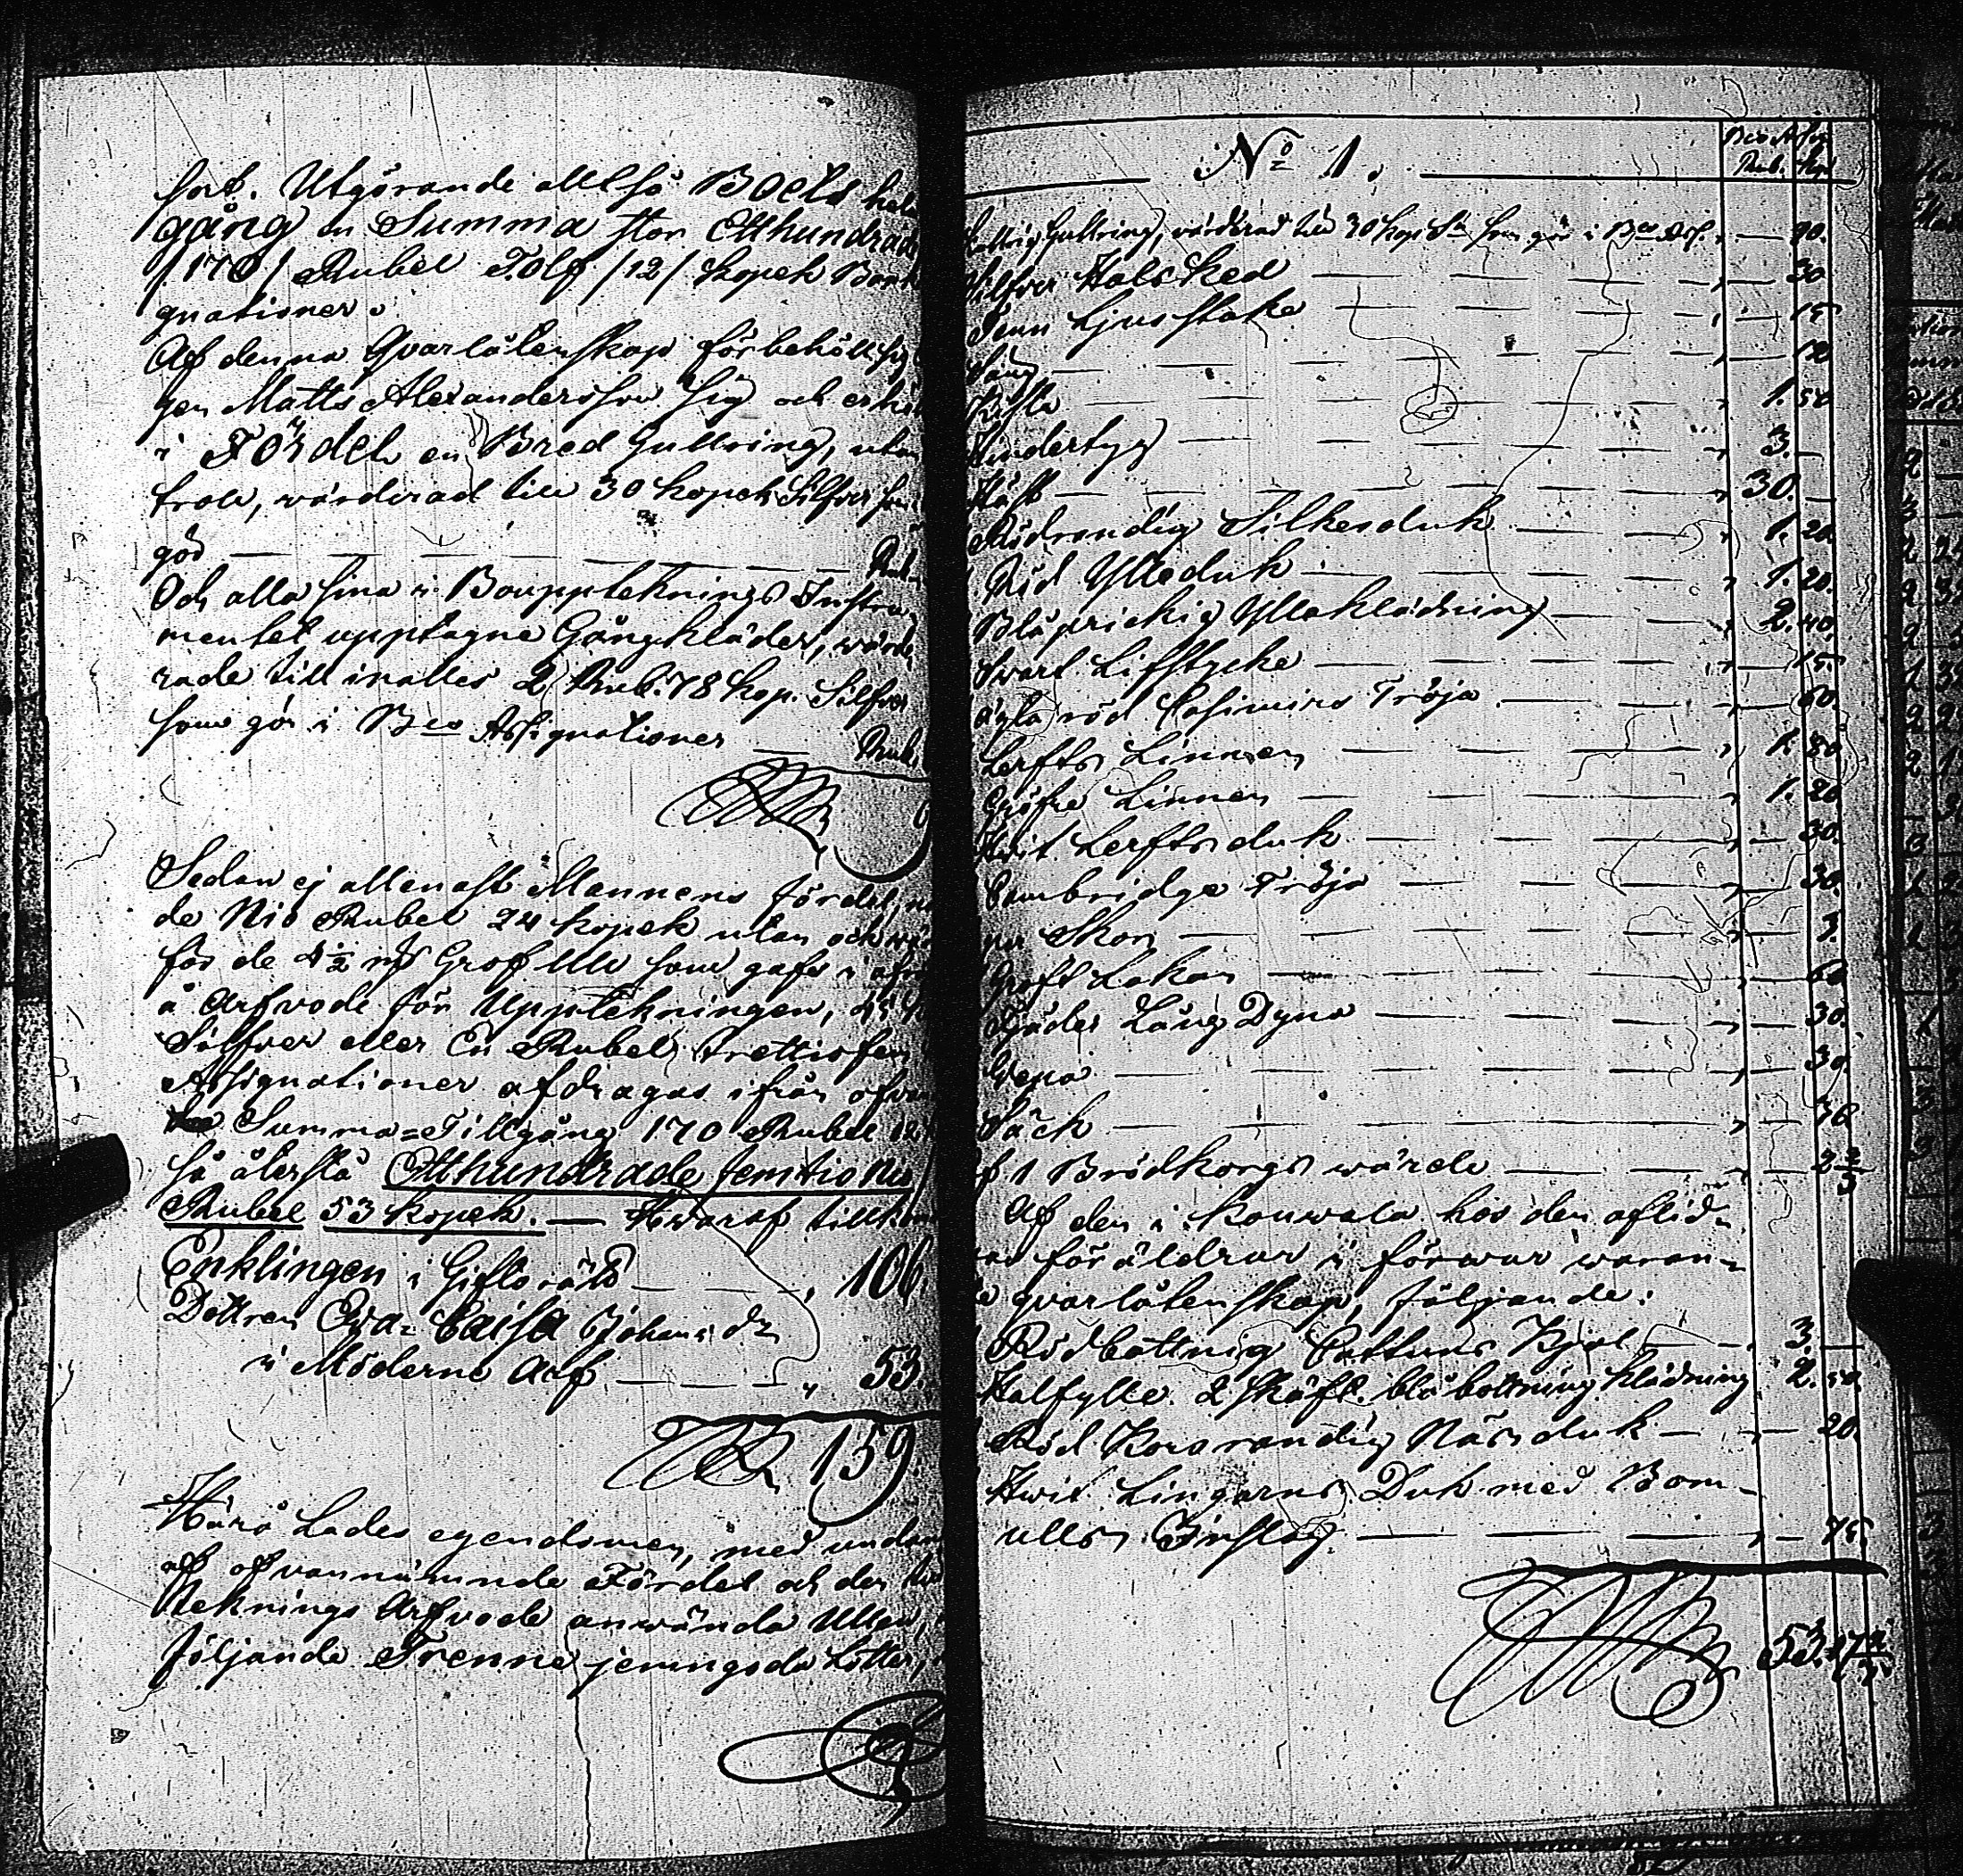 fört. Utgörande alltså Boets hela
gång en Summa stor Etthundrade
/170/ Rubel Tolf /12/ kopek Banko
gnationer.
Af denna Qvarlåtenskap förbehöll sig
gen Matts Alexandersson sig och erhöll
i Fördel en Bred Gullring, utan
trol, wärderad till 30 kopek Silfver som
gör Rub.
Och alla sina i Bouppteknings Instru
mentet upptagne Gångkläder, wärde
rade till inalles 2 Rub. 78 kop. Silfver
som gör i Bco Assignationer Rub.
Sedan ej allenast Mannens fördel,
de Nio Rubel 24 kopek utan och
för de 4 1/2 Grof Ull som gafs i
å Arfvode för Upptekningen,
Silfver eller En Rubel trettiofem
Assignationer afdragas ifrån ofvan
Summa=Tillgång 170 Rubel 12
så återstå Etthundrade femtio Nio
Rubel 53 kopek. — Hwaraf till
Enklingen i Giftorätt 106
Dottren Eva Caisa Johansdr
i Möderne Arf " 53
159
Härå Lades egendomen, med undan
af ofvannämnde Fördel och den
tekning Arfvode använda Ullen,
följande Trenne jemngoda Lotter,
No 1.
Bco Assg.
Rub. Kop.
Gullring, wärderad till 30 kop Sr som gör i Bco Ass. " — 90.
Silfver Halsked " — 30
Tenn Ljusstake " — 15
Säng " — 12
Kista " 1. 50
Hindertyg " 3. —
Häst " 30. —
Rödrandig Silkesduk " 1. 20
Röd Ylleduk " 1. 20.
Blåprickig Ylleklädning " 2. 40.
Svart Lifstycke " — 15.
röd Casimirs Tröja " — 60.
Lerfts Linnen " 1. 80
Gröfre Linnen " 1. 20
Hvit Lerftsduk " — 30.
Cambridge Tröja " — 30.
par Skor " — 3.
Groft Lakan " — 60
Fjäder Lång Dyna " — 30.
Wepa " — 30
Säck " — 76
af 1 Brödkorgs wärde " — 2 2/3
Af den i Kouwala hos den aflidn
as föräldrar i förwar waran=
de qvarlåtenskap, följande:
Rödbottnig Cattuns Kjol " 3. —
Halfylle 2 skäft. blåbottning klädning 2. 50.
Röd Korsrandig Näsduk " — 20.
Hwit Lingarns Duk med Bom=
ulls Inslag. " — 75.
53.17 2/3